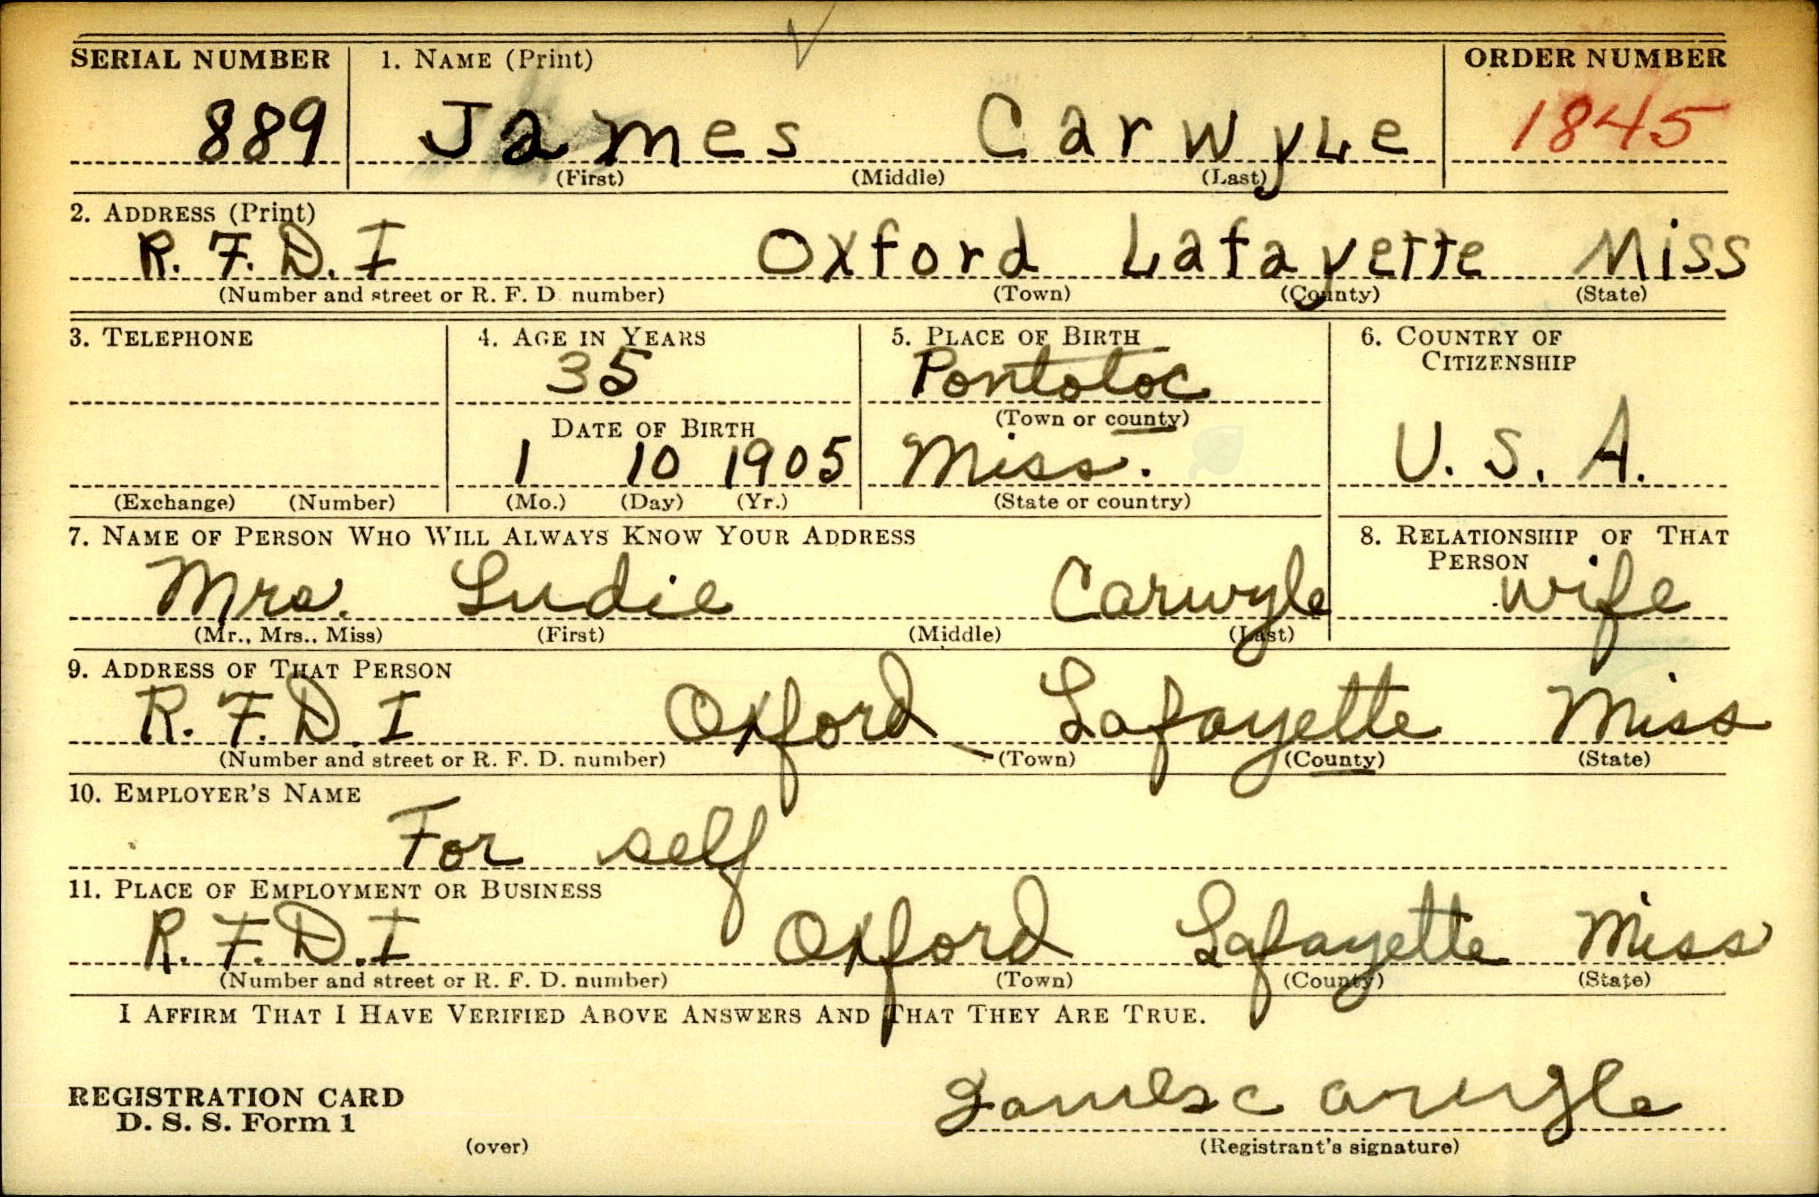 SERIAL NUMBER 1. NAME (Print) ORDER NUMBER
889 James Carwyle 1845
(First) (Middle) (Last)
2. ADDRESS (Print)
R. F. D. I Oxford Lafayette Miss
(Number and street or R. F. D. number) (Town) (County) (State)
3. TELEPHONE 4. AGE IN YEARS 5. PLACE OF BIRTH 6. COUNTRY OF CITIZENSHIP
35 Pontotoc
(Town or county)
DATE OF BIRTH
1 10 1905 Miss. U. S. A.
(Exchange) (Number) (Mo.) (Day) (Yr.) (State or country)
7. NAME OF PERSON WHO WILL ALWAYS KNOW YOUR ADDRESS 8. RELATIONSHIP OF THAT PERSON
Mrs. Ludie Carwyle wife
(Mr., Mrs., Miss) (First) (Middle) (Last)
9. ADDRESS OF THAT PERSON
R. F. D. I Oxford Lafayette Miss
(Number and street or R. F. D. number) (Town) (County) (State)
10. EMPLOYER'S NAME
For self
11. PLACE OF EMPLOYMENT OR BUSINESS
R. F. D. I Oxford Lafayette Miss
(Number and street or R. F. D. number) (Town) (County) (State)
I AFFIRM THAT I HAVE VERIFIED ABOVE ANSWERS AND THAT THEY ARE TRUE.
James Carwyle
REGISTRATION CARD
D. S. S. Form 1
(over) (Registrant's signature)